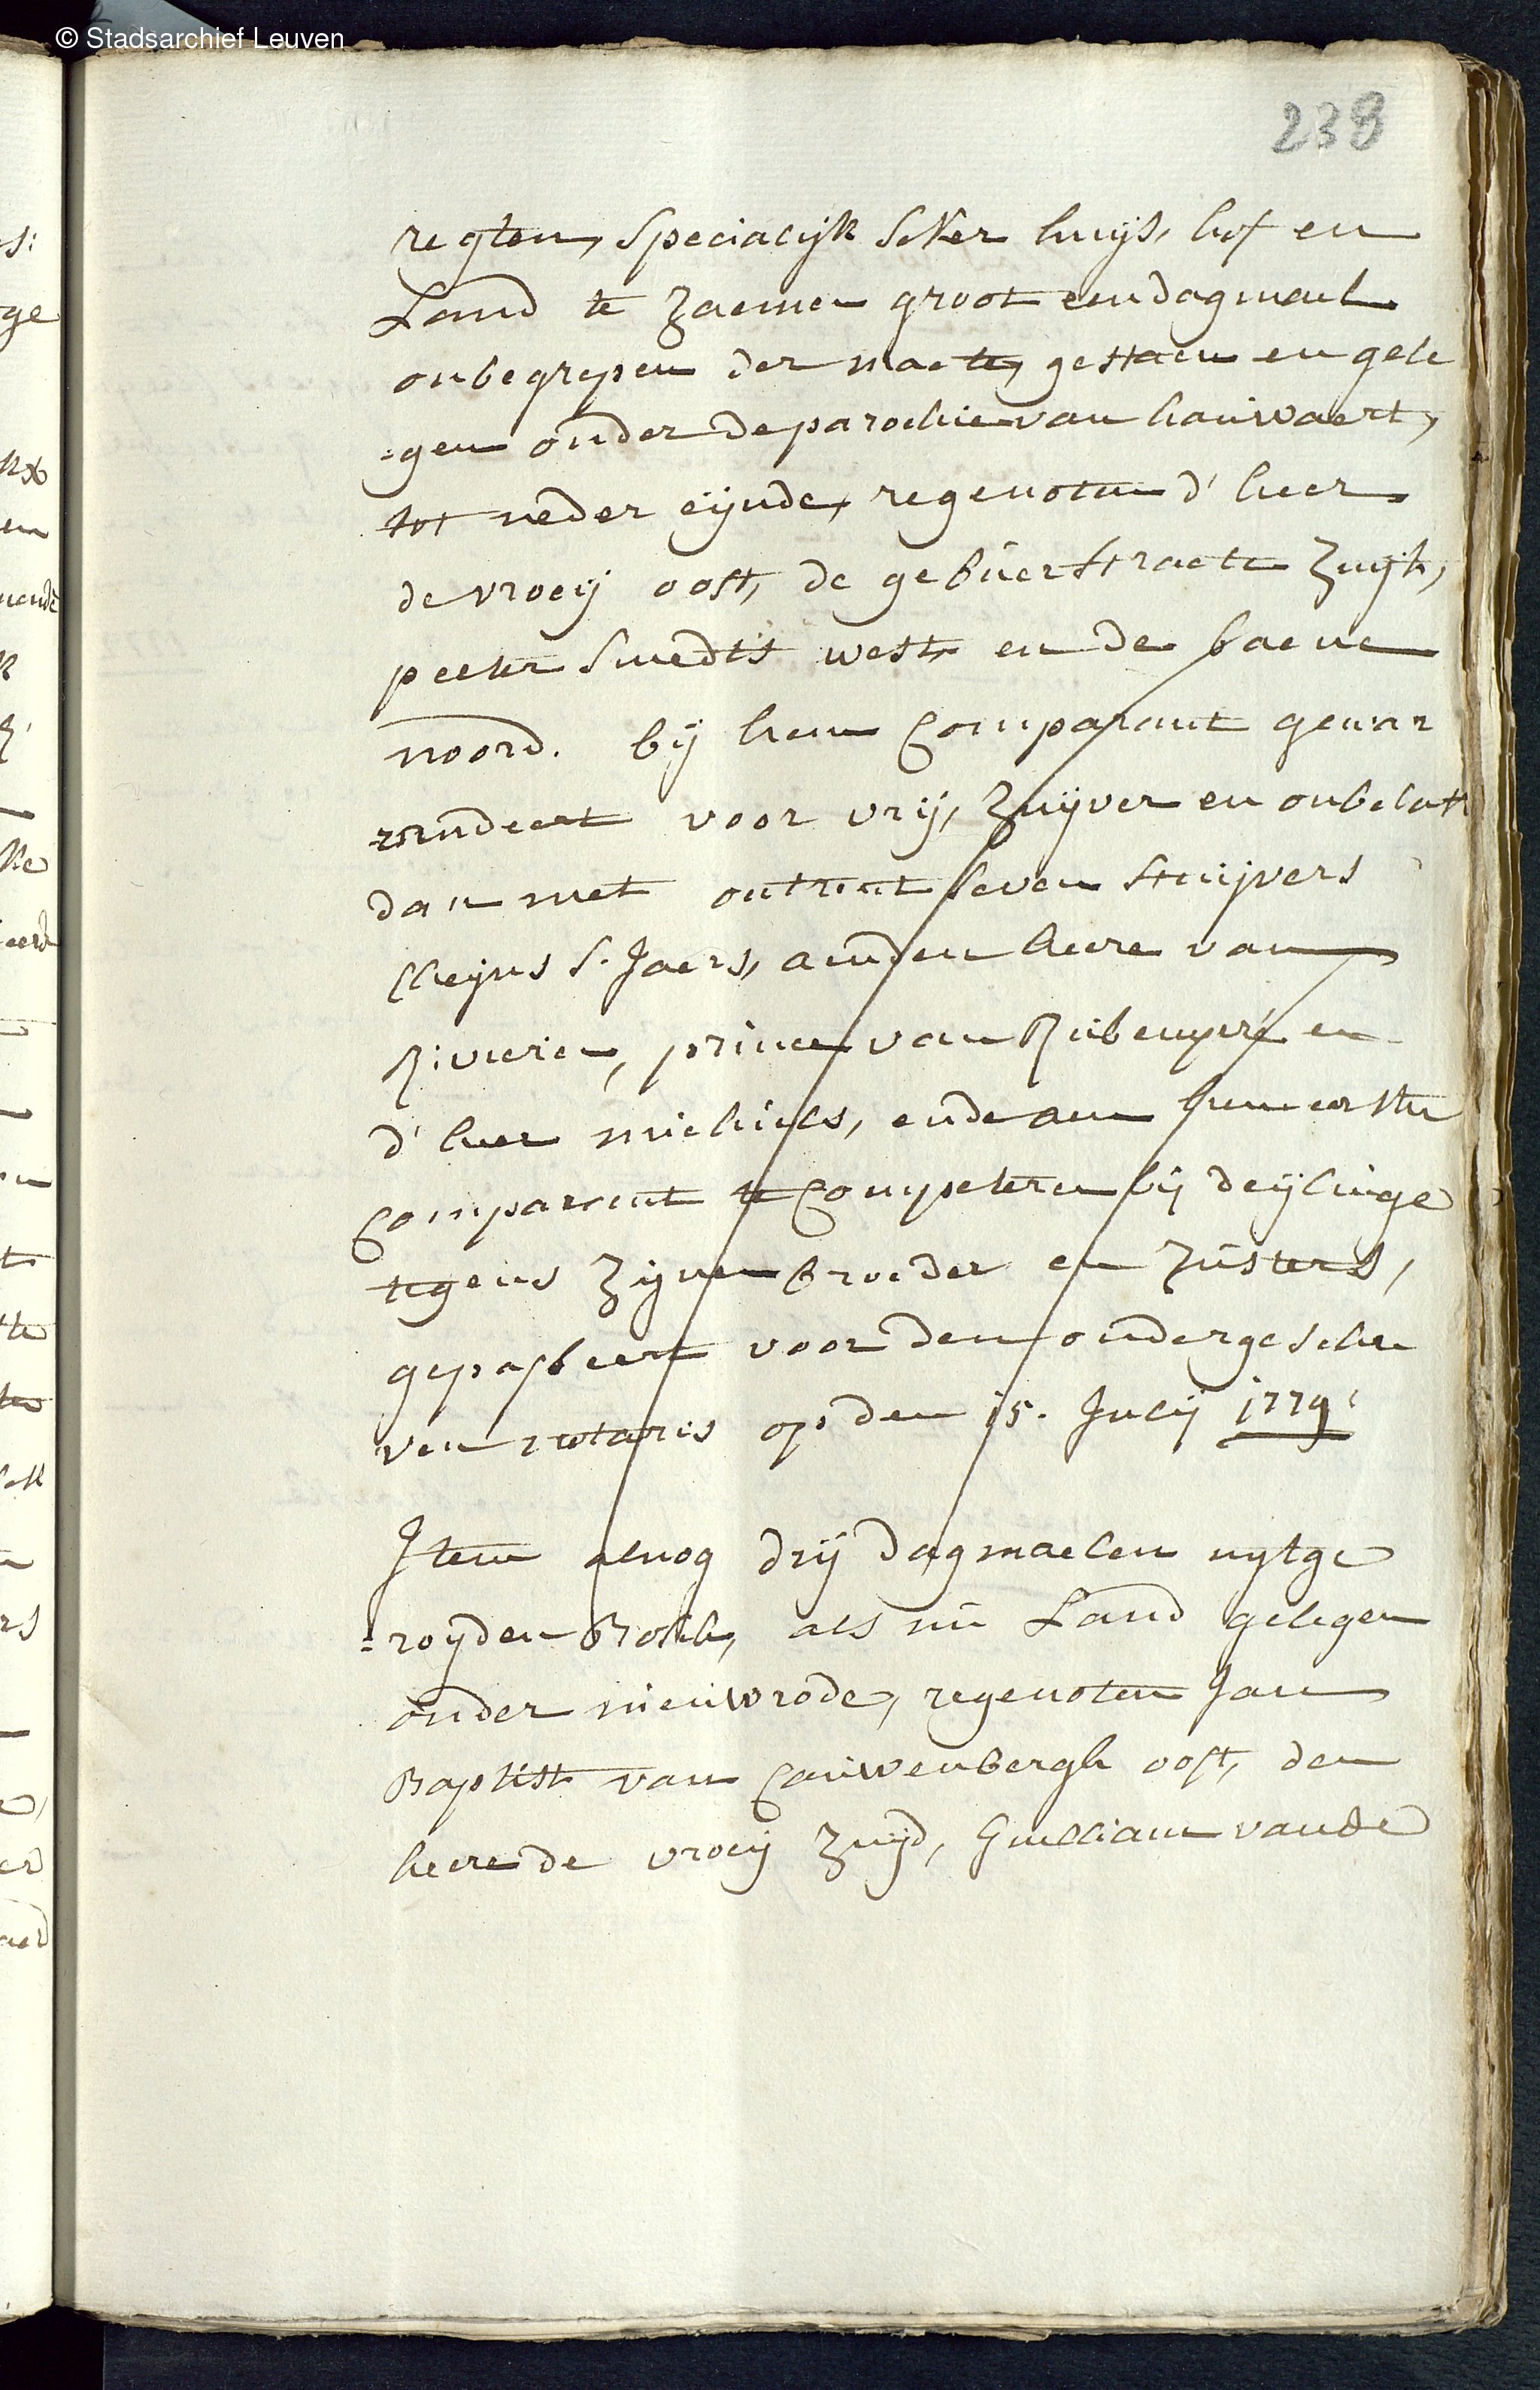 © Stadsarchief Leuven
239
regten, specialijk seker huijs, hof en
Land te zaemen groot een dagmael
onbegrepen der maete, gestaen en gele
=gen onder de parochie van hauwaert,
tot neder eijnde, regenoten d' heer
de vroeij oost, de gebuerstraete zuijt,
peeter Smedts west, en de baene
noord. bij hem Comparant gewar
randeert voor vrij, zuijver en onbelast
dan met ontrent seven stuijvers
Cheijns s. Jaers, aen den heere van
Rivieren, prince van Rubempré en
d' heer michiels, ende aen hem eersten
Comparant te Competeren bij deijlinge
tegens zijnen broeder en zusters,
gepasseert voor den ondergeschre
ven notaris op den 15. Julij 1779
Item alnog drij dagmaelen uytge
=royden Bosch, als nu Land gelegen
onder nieuwrode, regenoten Jan
Baptist van Cauwenbergh oost, den
heere de vroeij zuijd, Guilliam vande